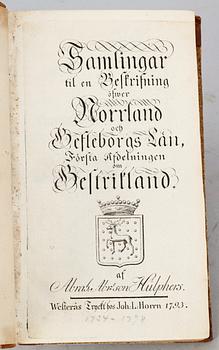 Samlingar
til en Beskrifning
öfwer
Norrland
och
Gefleborgs Län,
Första Afdelningen
om
Gestrikland.
af
Abrah. Abr:son Hülphers.
Westerås Tryckt hos Joh. L. Horrn 1793.